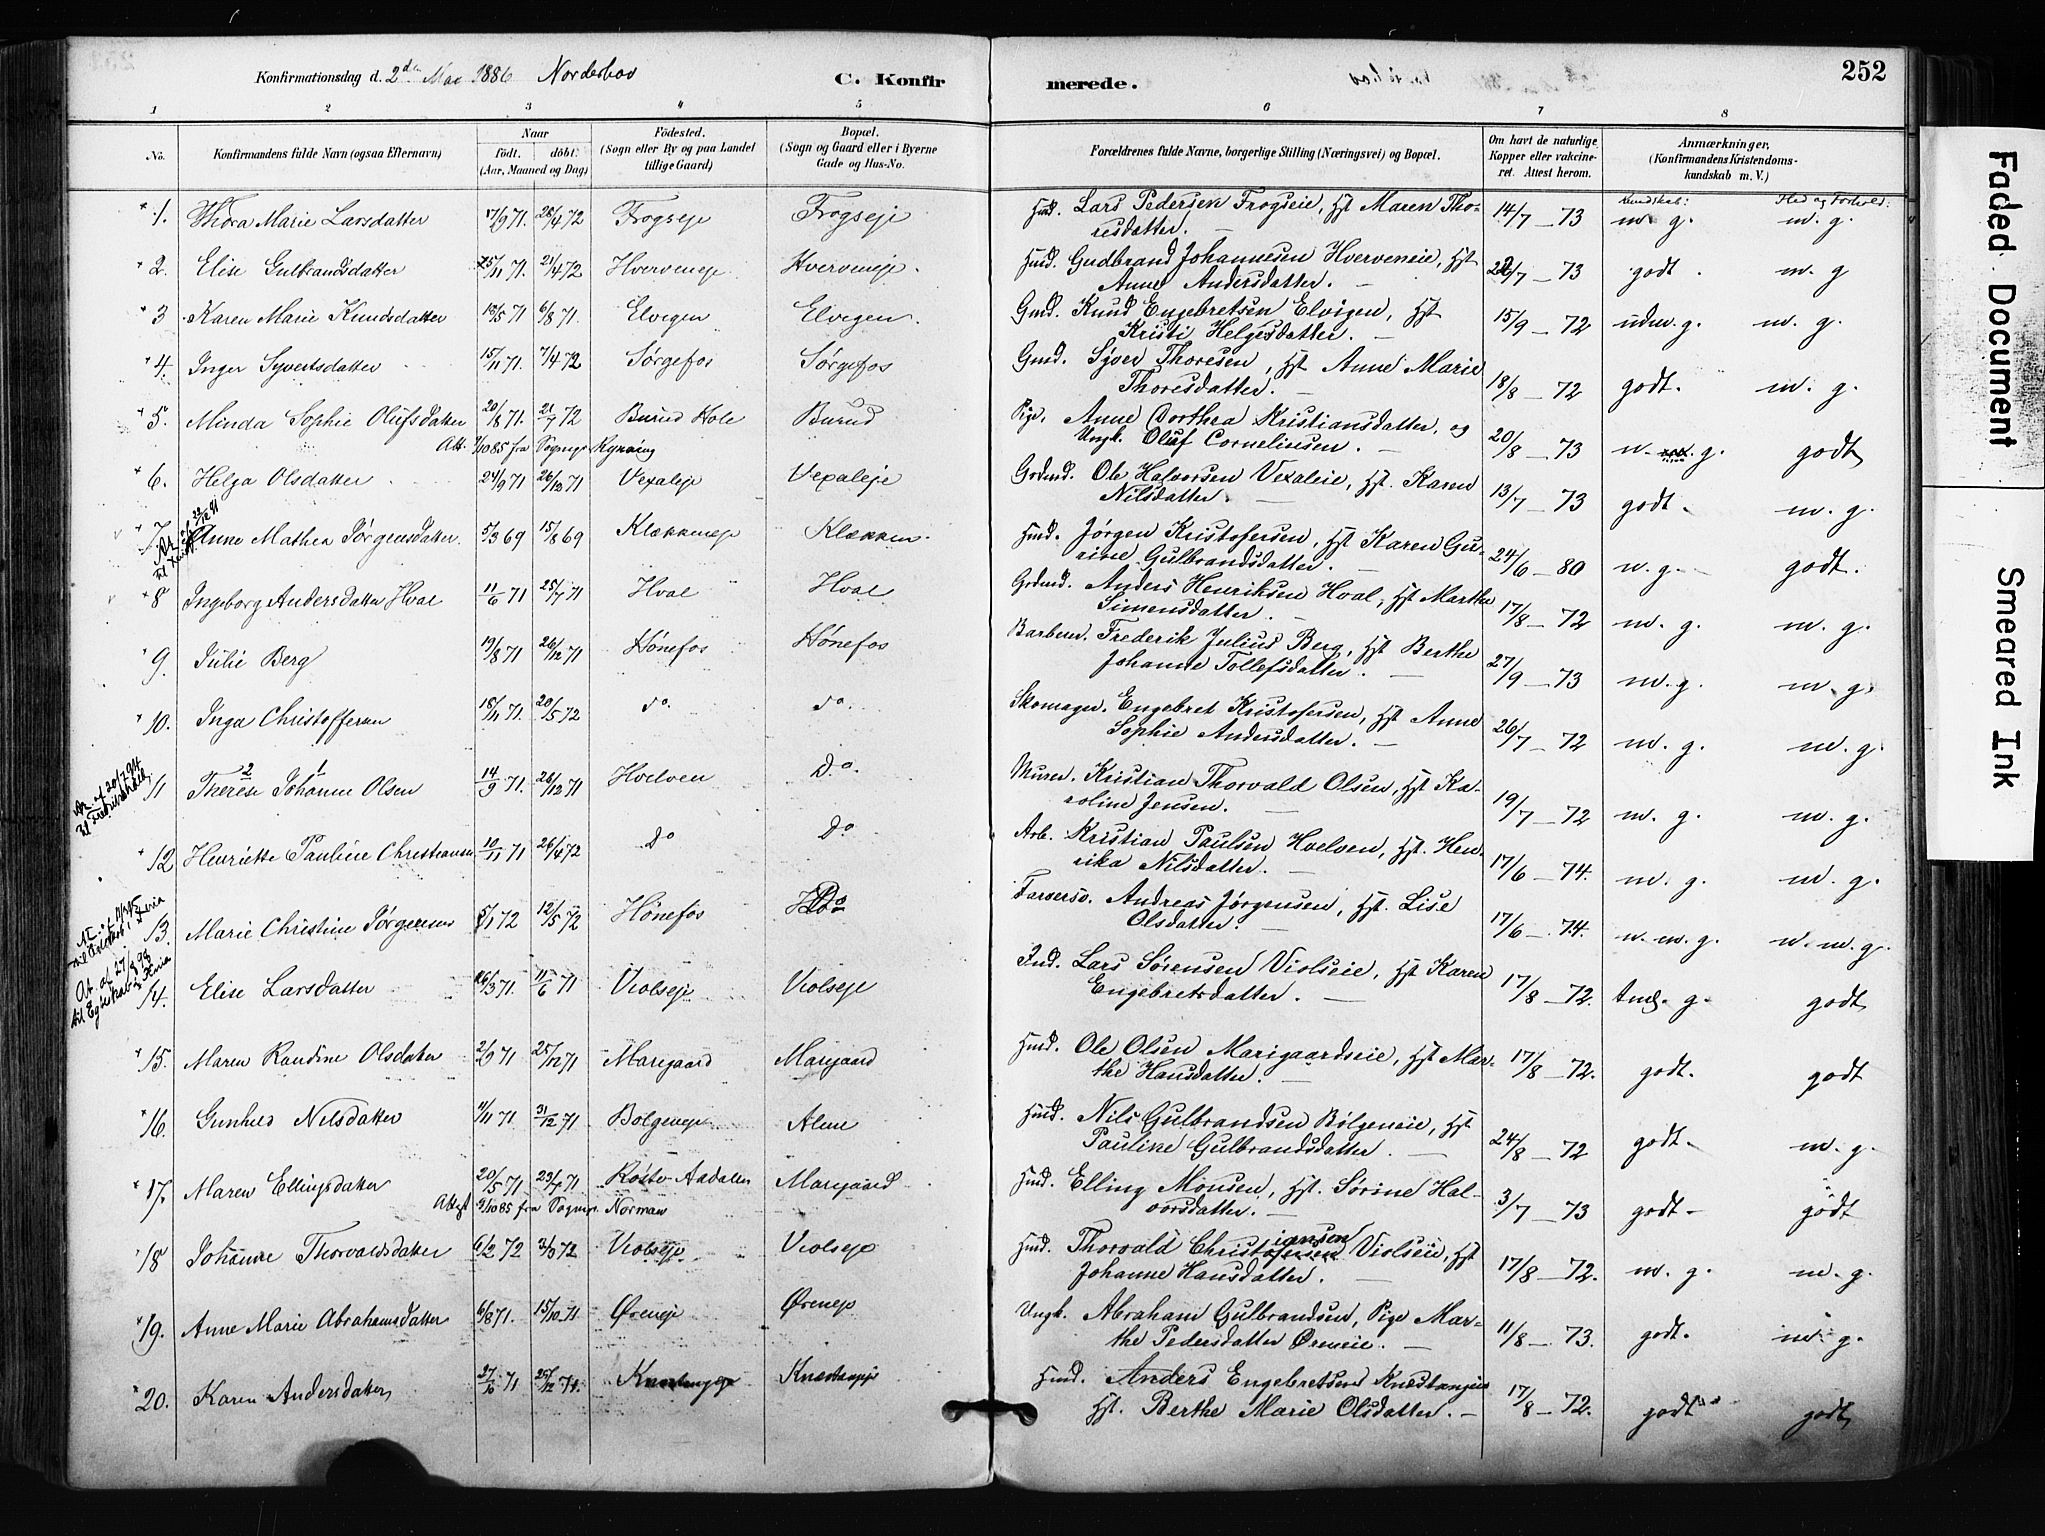 252
Konfirmationsdag d. 2den Mai 1886 Norderhov C. Konfirmerede.
1 2 3 4 5 6 7 8
No. Konfirmandens fulde Navn (ogsaa Efternavn) Naar født. døbt. (Aar, Maaned og Dag) Fødested. (Sogn eller By og paa Landet tillige Gaard) Bopæl. (Sogn og Gaard eller i Byerne Gade og Hus-No. Forældrenes fulde Navne, borgerlige Stilling (Næringsvei) og Bopæl. Om havt de naturlige Kopper eller vakcineret. Attest herom. Anmærkninger, (Konfirmandens Kristendomskundskab m. V.)
Kundskab: Flid og Forhold:
1. Thora Marie Larsdatter 17/9 71. 28/4 72 Frogseje Frogseje Husd. Lars Pedersen Frogseie, Hst Maren Thoresdatter. 14/7 – 73 m. g. m. g.
2. Elise Gulbrandsdatter 25/11 71. 21/4 72 Hverveneje Hverveneje. Husd. Gudbrand Johannesen Hverveneie, Hst Anne Andersdatter. 22/7 – 73 godt. m. g
3 Karen Marie Knudsdatter 13/5 71 6/8 71. Elvegen Elvegen. Gmd. Knud Engebretsen Elvigen, Hst Kristi Helgesdatter. 15/9 – 72 udm. g. m. g.
4. Inger Syvertsdatter 15/11 71. 7/4 72 Sørgefos Sørgefos Gmd. Syver Thoresen, Hst Anne Marie Thoresdatter. 18/8 – 72 godt. m. g.
5. Minda Sophie Olufsdatter 20/8 71. 21/7 72 Burud Hole Burud Pige. Anne Dorthea Kristiansdatter, og Ungk. Oluf Corneliusen. 20/8 – 73 m. g. godt
Att. 7/10 85 fra Sognepr. Kynning
6. Helga Olsdatter 24/9 71 26/12 71 Vexaleje Vexaleje Grdmd. Ole Halvorsen Vexaleie, Hst. Karen Nilsdatter 13/7 – 73 godt. m. g.
7. Anne Mathea Jørgensdatter. 5/3 69 15/8 69 Klækkeneje Klækken. Husd. Jørgen Kristofersen, Hst Karen Gurine Gulbrandsdatter. 24/6 – 80 m. g. godt.
8 Ingeborg Andersdatter Hval 11/6 71 25/7 71 Hval Hval Grdmd. Anders Henriksen Hval, Hst Marthe Simensdatter. 17/8 – 72 m. g. m. g.
9. Julie Berg 19/8 71 26/12 71 Hønefos Hønefos Barberer. Frederik Julius Berg, Hst Berthe Johanne Tollefsdatter. 27/9 – 73 m. g. m. g.
10. Inga Christoffersen 18/11 71. 20/5 72 do. do. Skomager. Engebret Kristofersen, Hst Anne Sophie Andersdatter. 26/7 – 72 m. g. m. g.
11 Therese Johanne Olsen 14/9 71. 26/12 71 Hvelven Do. Murer. Kristian Thorvald Olsen, Hst Karoline Jensen. 19/7 – 72 m. g. m. g.
12 Henriette Pauline Christiansen 10/11 71 26/4 72 Do Do Arb. Kristian Paulsen Hvelven, Hst. Henrika Nilsdatter. 17/6 – 74. m. g. m. g.
13. Marie Christine Jørgensen 5/1 72 12/5 72 Hønefos Do Farversv. Andreas Jørgensen, Hst. Lise Olsdatter. 17/6 – 74. n. m. g. n. m. g.
14. Elise Larsdatter 16/3 71. 11/6 71 Violseje Violseje Ind. Lars Sørensen Violseie, Hst Karen Engebretsdatter. 17/8 – 72. g. godt
15. Maren Randine Olsdatter 2/9 71 25/12 71 Marigaard Marigaard Husd. Ole Olsen Marigaardseie, Hst Marthe Hansdatter. 17/8 – 72. godt. godt
16. Gunhild Nilsdatter 1/11 71. 31/12 71 Bølgeneje Alme Husd. Nils Gulbrandsen Bølgeneie, Hst Pauline Gulbrandsdatter. 24/8 – 72 godt. m. g.
17. Maren Ellingsdatter 20/5 71 23/7 71 Aadalen Marigaard Husd. Elling Monsen, Hst. Sørine Halvorsdatter. 3/7 – 73 godt godt
Attest 9/10 85 fra Sognepr. Norman
18 Johanne Thorvaldsdatter 6/2 72 31/3 72 Violseje Violseje Husd. Thorvald Christiansen Violseie, Hst Johanne Hansdatter. 17/8 – 72. m. g. m. g.
19. Anne Marie Abrahamsdatter 6/8 71. 15/10 71 Øreneje Øreneje Ungk. Abraham Gulbrandsen, Pige Marthe Pedersdatter Øreneie. 11/8 – 73. godt. m. g.
20. Karen Andersdatter 27/10 71 25/12 71. Knestangeje Knestangeje Husd. Anders Engebretsen Knestangeie Hst. Berthe Marie Olsdatter. 17/8 – 72. godt godt
Faded Document
Smeared Ink